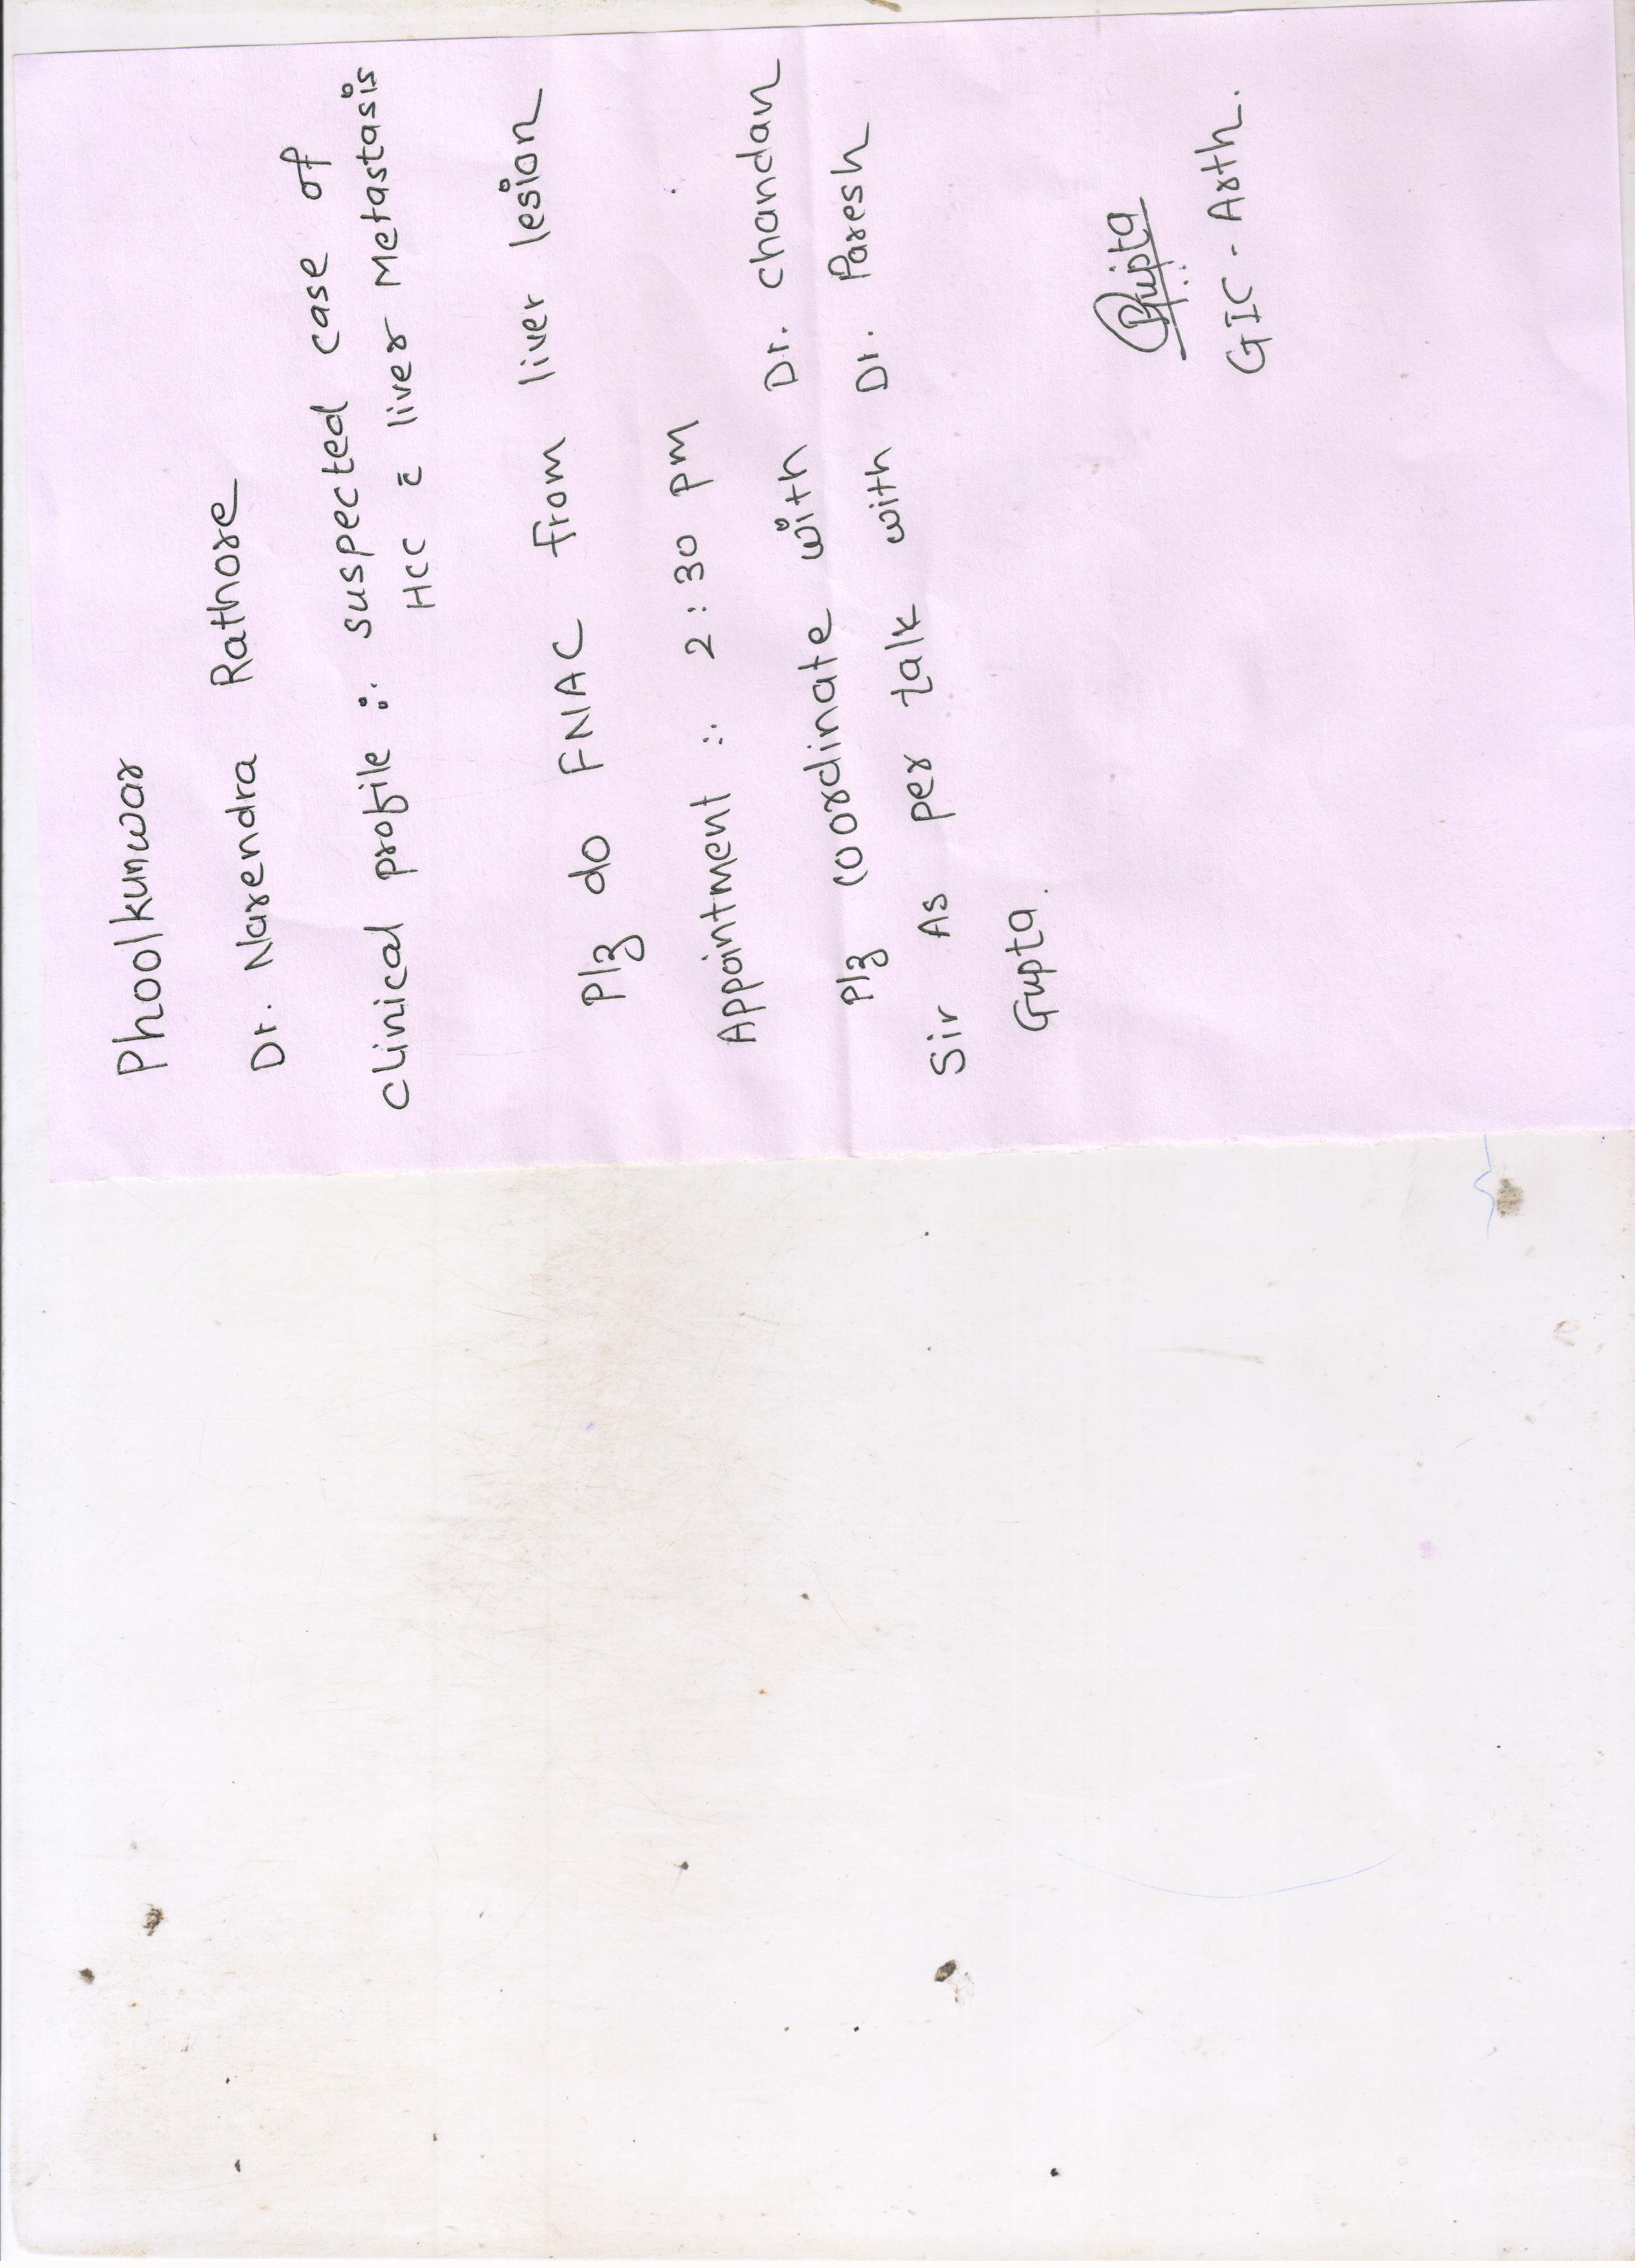 Phoolkunwar
Dr. Narendra Rathore
Clinical profile : suspected case of
HCC c̄ liver Metastasis
Plz do FNAC from liver lesion
Appointment : 2:30 pm
Plz coordinate with Dr. Chandan
Sir As per talk with Dr. Paresh
Gupta.
Gupta
GIC - Arth.